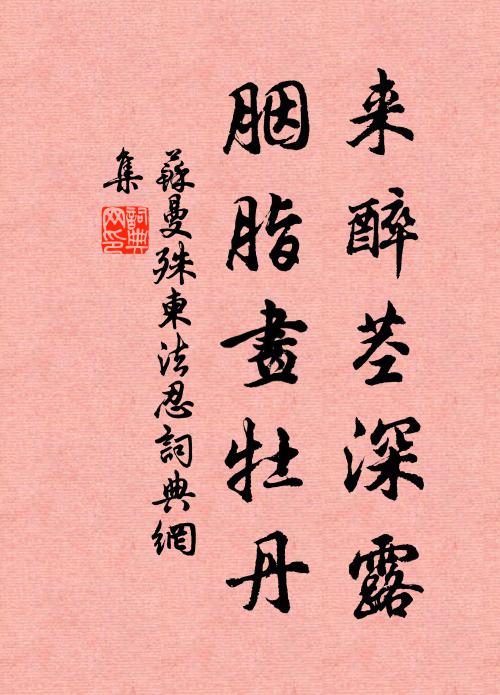 来醉茎深露
胭脂畫牡丹
蘇曼殊東法忍詞典網
集
詞典
网印